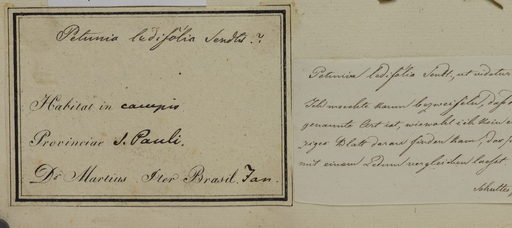 Petunia ledifolia Sendtn ??
Habitat in campis
Provinciae S. Pauli.
Dr Martius Iter Brasil. Jan.
Petunia ledifolia Sendt, ut videtur
Ich moechte kaum bezweifeln, daß
genannte Art ist, wiewohl ich kein
Blatt daran finden kann, das
mit einem Ledum vergleichen lasset.
Schultes